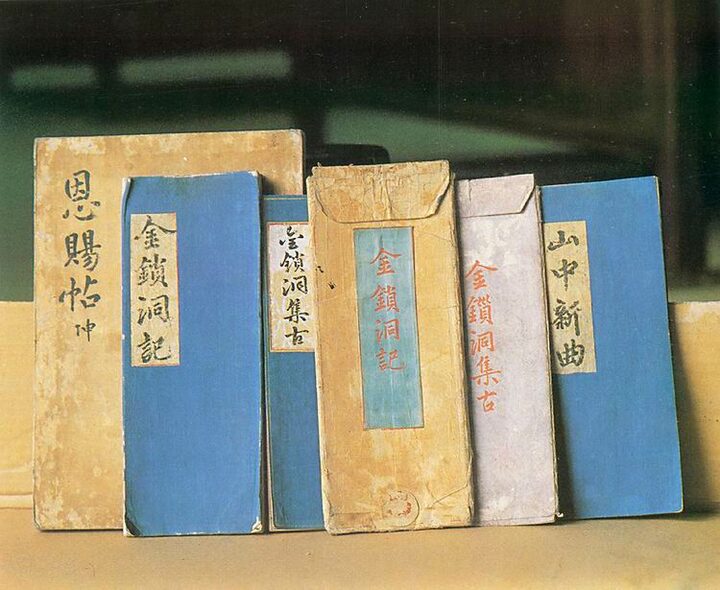 恩賜帖 冲
金鎖洞記
金鎖洞集古
金鎖洞記
金鎖洞集古
山中新曲